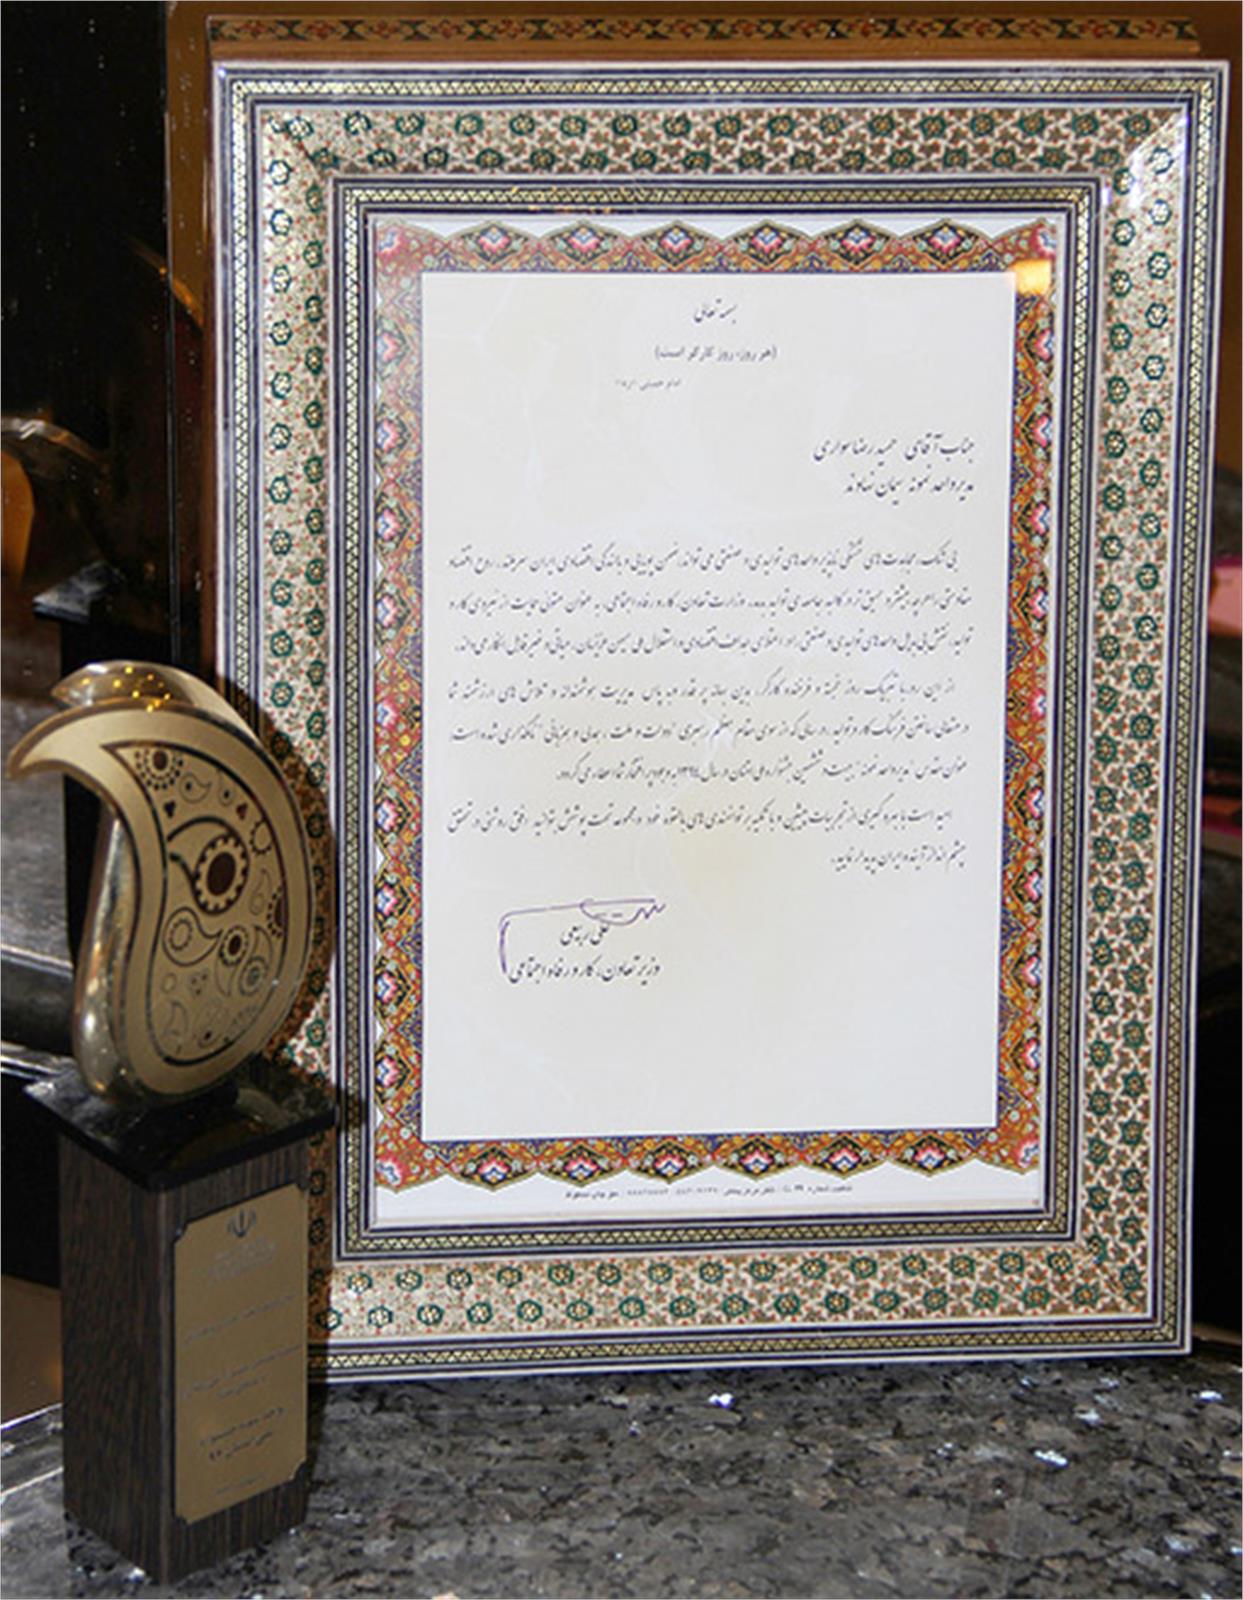 بسمه تعالی
(هر روز، روز کارگر است)
امام خمینی (ره)
جناب آقای حمید رضا سواری
مدیر واحد نمونه سیمان نهاوند
بی شک، مجاهدت های خستگی ناپذیر واحدهای تولیدی و صنعتی می تواند ضمن پویایی و بالندگی اقتصادی ایران سربلند، روح اقتصاد
مقاومتی را هر چه بیشتر و عمیق تر در کالبد جامعه ی تولید بدمد. وزارت تعاون، کار و رفاه اجتماعی، به عنوان متولی حمایت از نیروی کار و
تولید، نقش بی بدیل واحدهای تولیدی و صنعتی را در اعتلای اهداف اقتصادی و استقلال ملی میهن عزیزمان، حیاتی و غیر قابل انکار می داند.
از این رو، با تبریک روز خجسته و فرخنده کارگر، بدین بهانه پر قدر و به پاس مدیریت هوشمندانه و تلاش های ارزشمند شما
در متعالی ساختن فرهنگ کار و تولید، در سالی که از سوی مقام معظم رهبری "دولت و ملت، همدلی و همزبانی" نامگذاری شده است
عنوان مقدس "مدیر واحد نمونه" بیست و ششمین جشنواره ملی استان در سال ۱۳۹۴ به وجود پر افتخار شما اعطا می گردد.
امید است با بهره گیری از تجربیات پیشین و با تکیه بر توانمندی های بالقوه خود و مجموعه تحت پوشش بتوانید افقی روشنی در تحقق
چشم انداز آینده ایران پدیدار نمایید.
علی ربیعی
وزیر تعاون، کار و رفاه اجتماعی